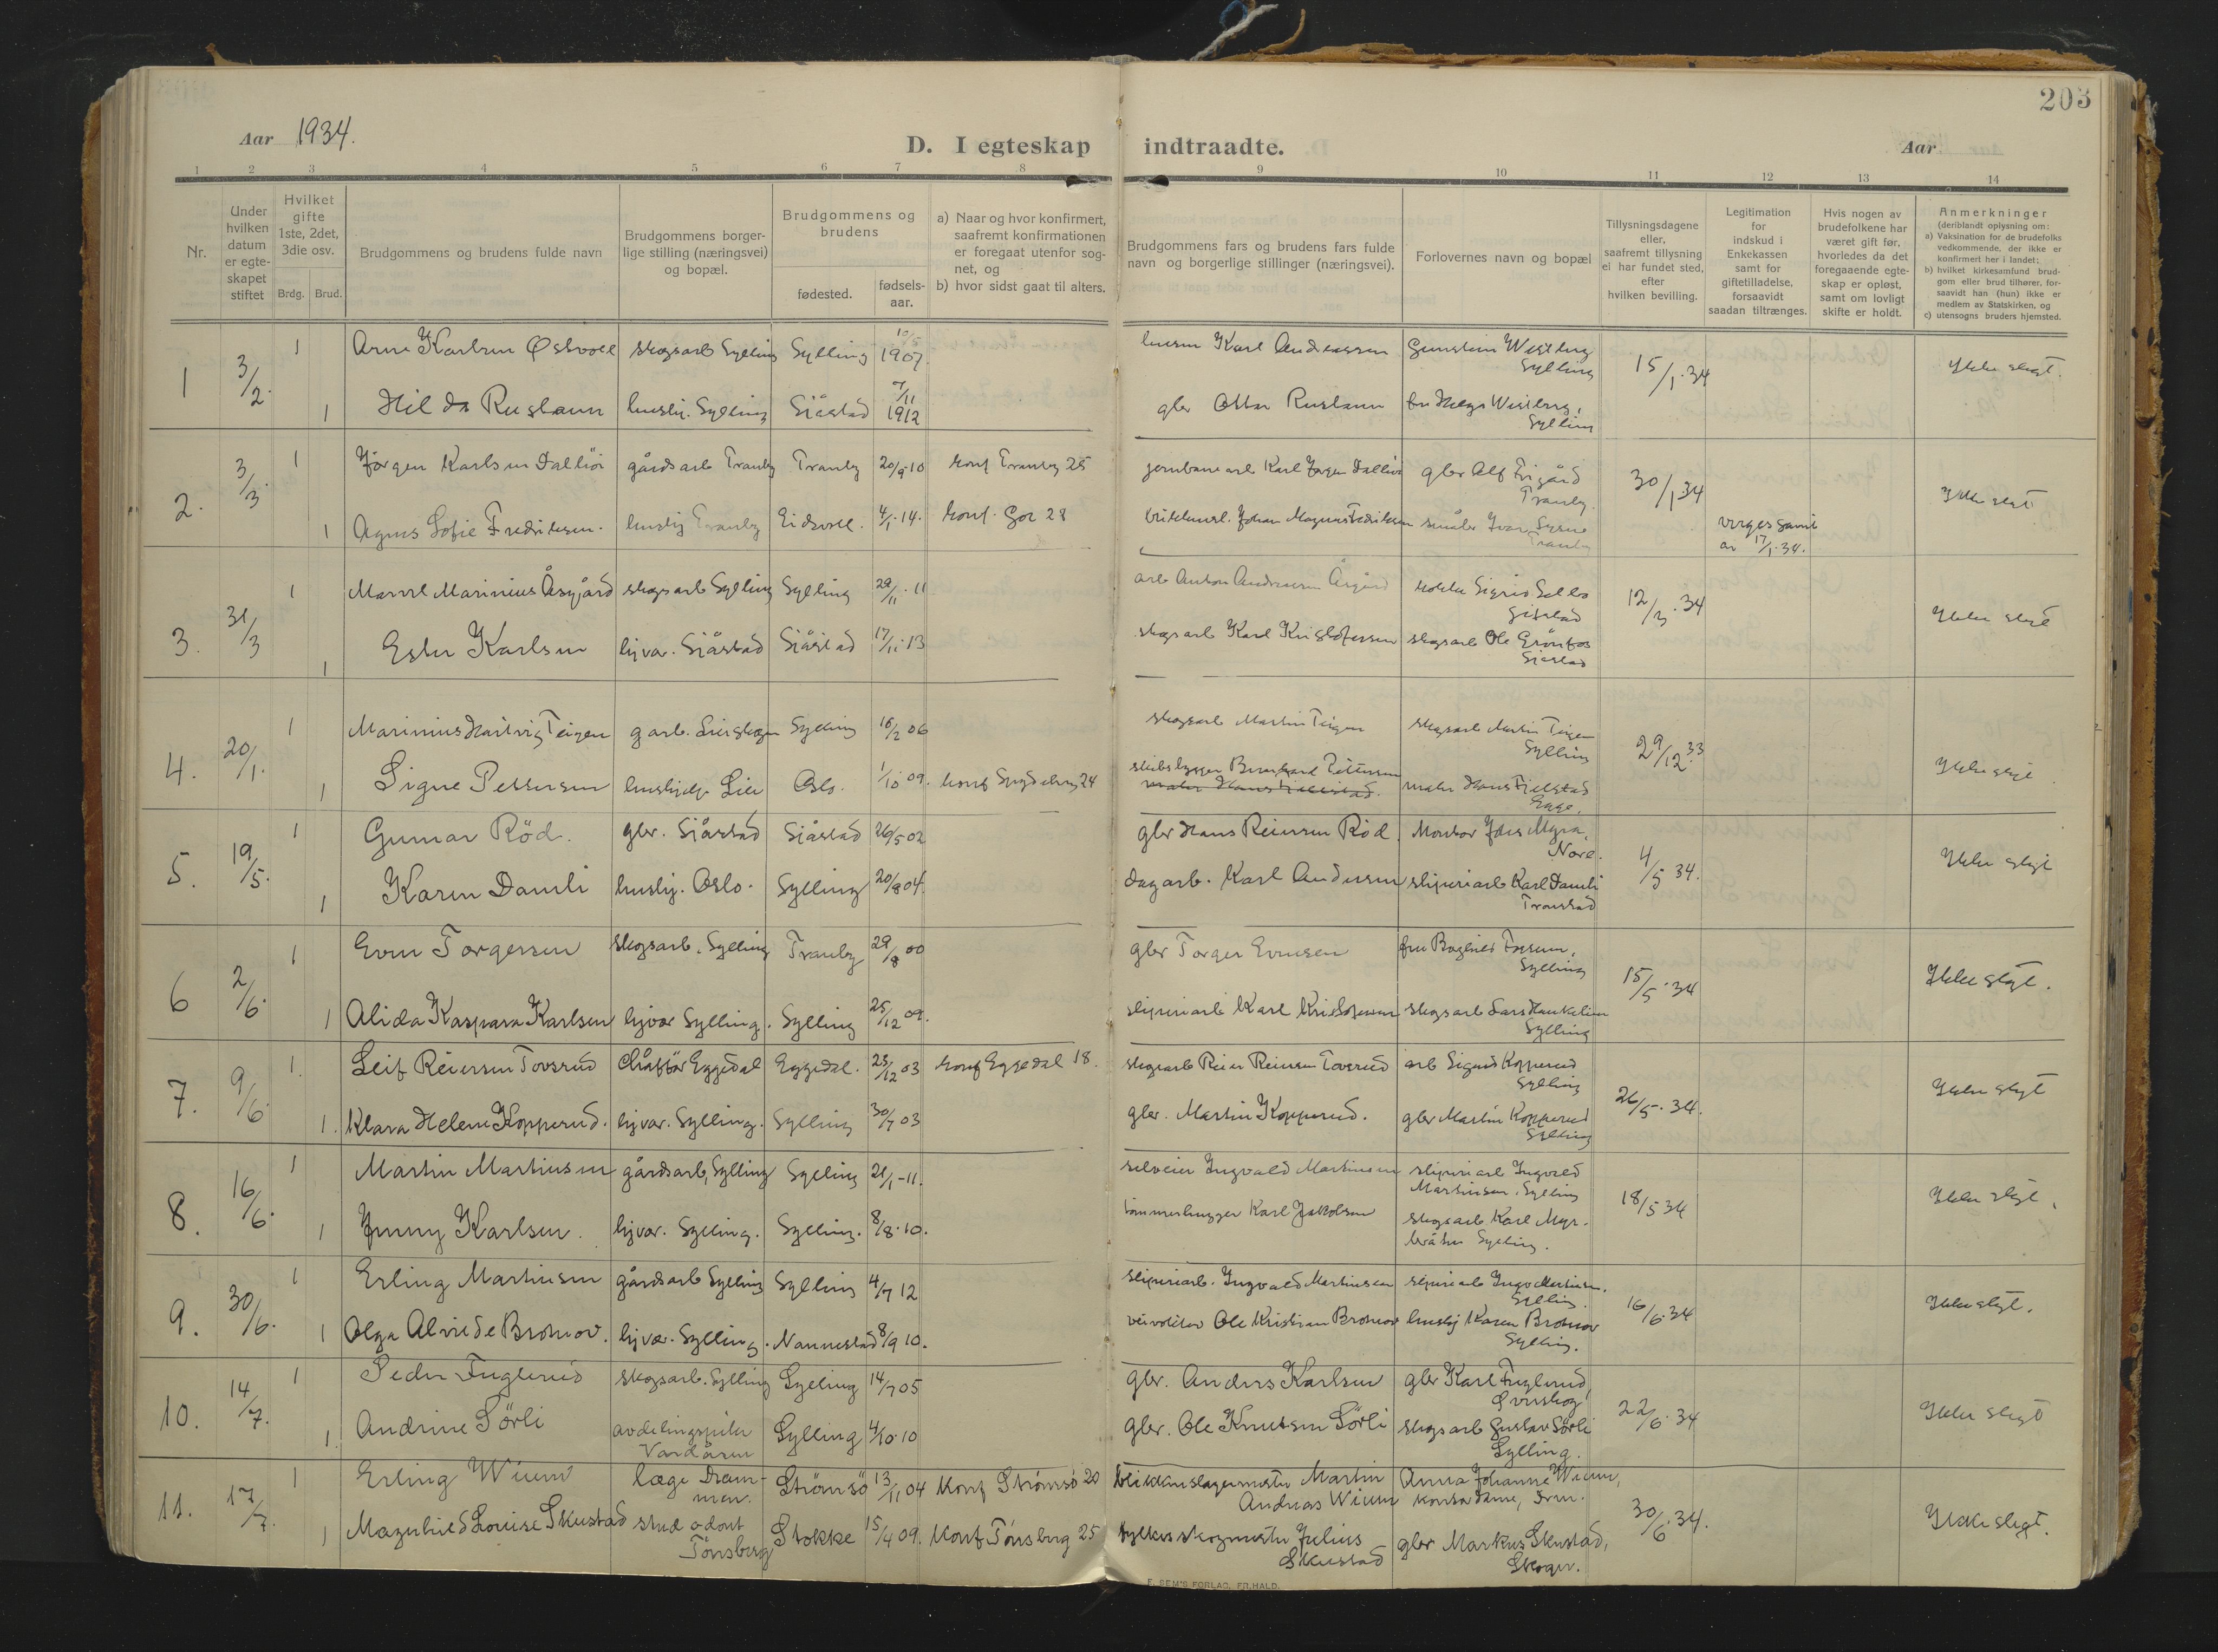 203
Aar 1934.
D. I egteskap indtraadte.
Aar
1 2 3 4 5 6 7 8 9 10 11 12 13 14
Nr.
Under hvilken datum er egteskapet stiftet
Hvilket gifte 1ste, 2det, 3die osv.
Brdg. Brud.
Brudgommens og brudens fulde navn
Brudgommens borger-
lige stilling (næringsvei)
og bopæl.
Brudgommens og
brudens
fødested.
fødsels-
aar.
a) Naar og hvor konfirmert,
saafremt konfirmationen
er foregaat utenfor sog-
net, og
b) hvor sidst gaat til alters.
Brudgommens fars og brudens fars fulde
navn og borgerlige stillinger (næringsvei).
Forlovernes navn og bopæl
Tillysningsdagene
eller,
saafremt tillysning
ei har fundet sted,
efter
hvilken bevilling.
Legitimation
for
indskud i
Enkekassen
samt for
giftetilladelse,
forsaavidt
saadan tiltrænges.
Hvis nogen av
brudefolkene har
været gift før,
hvorledes da det
foregaaende egte-
skap er opløst,
samt om lovligt
skifte er holdt.
Anmerkninger
(deriblandt oplysning om:
a) Vaksination for de brudefolks
vedkommende, der ikke er
konfirmert her i landet;
b) hvilket kirkesamfund brud-
gom eller brud tilhører, for-
saavidt han (hun) ikke er
medlem av Statskirken, og
c) utensogns bruders hjemsted.
1 3/2. 1 Arne Karlsen Østvoll skogsarb Sylling Sylling 10/5 1907. Karl Andreassen Gunstein Westberg Sylling 15/1.34 Ikke slegt.
1 Hilda Ruslaun hushj. Sylling Sjåstad 7/11 1912 gbr Ottar Ruslaun fru Helga Westberg, Sylling
2. 3/3. 1 Jørgen Karlsen gårdsarb Tranby Tranby 20/9.10 konf Tranby 25 jernbanearb Karl Jørgen gbr Alf Frigård Tranby 30/1.34 Ikke slegt
1 Agnes Sofie Fredriksen. hushj Tranby Eidsvoll. 4/1.14. konf. Gol 28 Johan Magnus Fredriksen småbr Ivar Tranby av 17/1.34.
3. 31/3 1 Marinius Åsgård skogsarb Sylling Sylling 29/11.11 arb Anton Andreassen Åsgård Sigrid Sjåstad 12/3.34 Ikke slegt
1 Ester Karlsen hjvær. Sjåstad Sjåstad 17/11.13 skogsarb Karl Kristofersen skogsarb Ole Grönfos Sjåstad
4. 20/1. 1 Marinius Hartvig Teigen garb. Lierskogen Sylling 16/2 06 skogsarb Martin Teigen skogsarb Martin Teigen Sylling 29/12.33 Ikke slegt
1 Signe Pettersen hushjelp Lier Oslo. 1/10 09. konf Spydeberg 24 skibsbygger Bernhard Pettersen maler Hans Fjelstad maler Hans Fjelstad Enge.
5. 19/5. 1 Gunnar Röd. gbr. Sjåstad Sjåstad 26/5 02 gbr Hans Reiersen Röd. Montør Myra, Nore. 4/5 34. Ikke slegt
1 Karen Damli hushj. Oslo. Sylling 20/8 04. dagarb. Karl Andersen sliperiarb Karl Damli Tronstad
6 2/6. 1 Even Torgersen skogsarb. Sylling Tranby 29/8 00 gbr Torger Evensen fru Fossum, Sylling 15/5.34 Ikke slegt.
1 Alida Kaspara Karlsen hjvær Sylling. Sylling 25/12 09. sliperiarb Karl Kristofersen skogsarb Lars Haukelien Sylling
7. 9/6. 1. Leif Reiersen Tovsrud Chåffør Eggedal Eggedal. 23/12 03 konf Eggedal 18. skogsarb Reier Reiersen Tovsrud arb Sigurd Kopperud Sylling 26/5.34. Ikke slegt
1. Klara Helene Kopperud. hjvær. Sylling. Sylling 30/7 03 gbr. Martin Kopperud. gbr Martin Kopperud Sylling
8. 16/6. 1 Martin Martinsen gårdsarb, Sylling Sylling 21/1-11. selveier Ingvald Martinsen sliperiarb Ingvald Martinsen, Sylling 18/5 34 Ikke slegt.
1 Jenny Karlsen. hjvær. Sylling. Sylling. 8/8.10. tømmerhugger Karl Jakobsen skogsarb Karl Myr-
bråten Sylling.
9. 30/6. 1 Erling Martinsen gårdsarb Sylling Sylling 4/7 12 sliperiarb. Ingvald Martinsen sliperiarb Ingv Martinsen. Sylling. 16/6.34 Ikke slegt.
1 Olga Alvilde Bromov. hjvær. Sylling. Nannestad 8/9 10. veivokter Ole Kristian Bromov hushj Karen Bromov Sylling.
10. 14/7. 1 Peder Fuglerud skogsarb. Sylling Sylling 14/7 05 gbr. Anders Karlsen gbr Karl Fuglerud, 22/6.34 Ikke slegt
1. Andrine Sörli avdelingspleier Vardåsen Sylling 4/10.10 gbr. Ole Knutsen Sörli skogsarb Gustav Sörli Sylling.
11. 17/7. 1 Erling Wium læge Dram-
men. Strömsö 13/11 04 Konf Strömsö 20 blikkenslagermester Martin Andreas Wium Anna Johanne Wium, kontordame, Drm. 30/6 34. Ikke slegt.
1 Magnhild Louise Skustad stud odont Tönsberg Stokke 15/4 09. Konf Tönsberg 25 fylkesskogmester Julius Skustad gbr Markus Skustad, Skoger.
E. SEM'S FORLAG, FR.HALD.